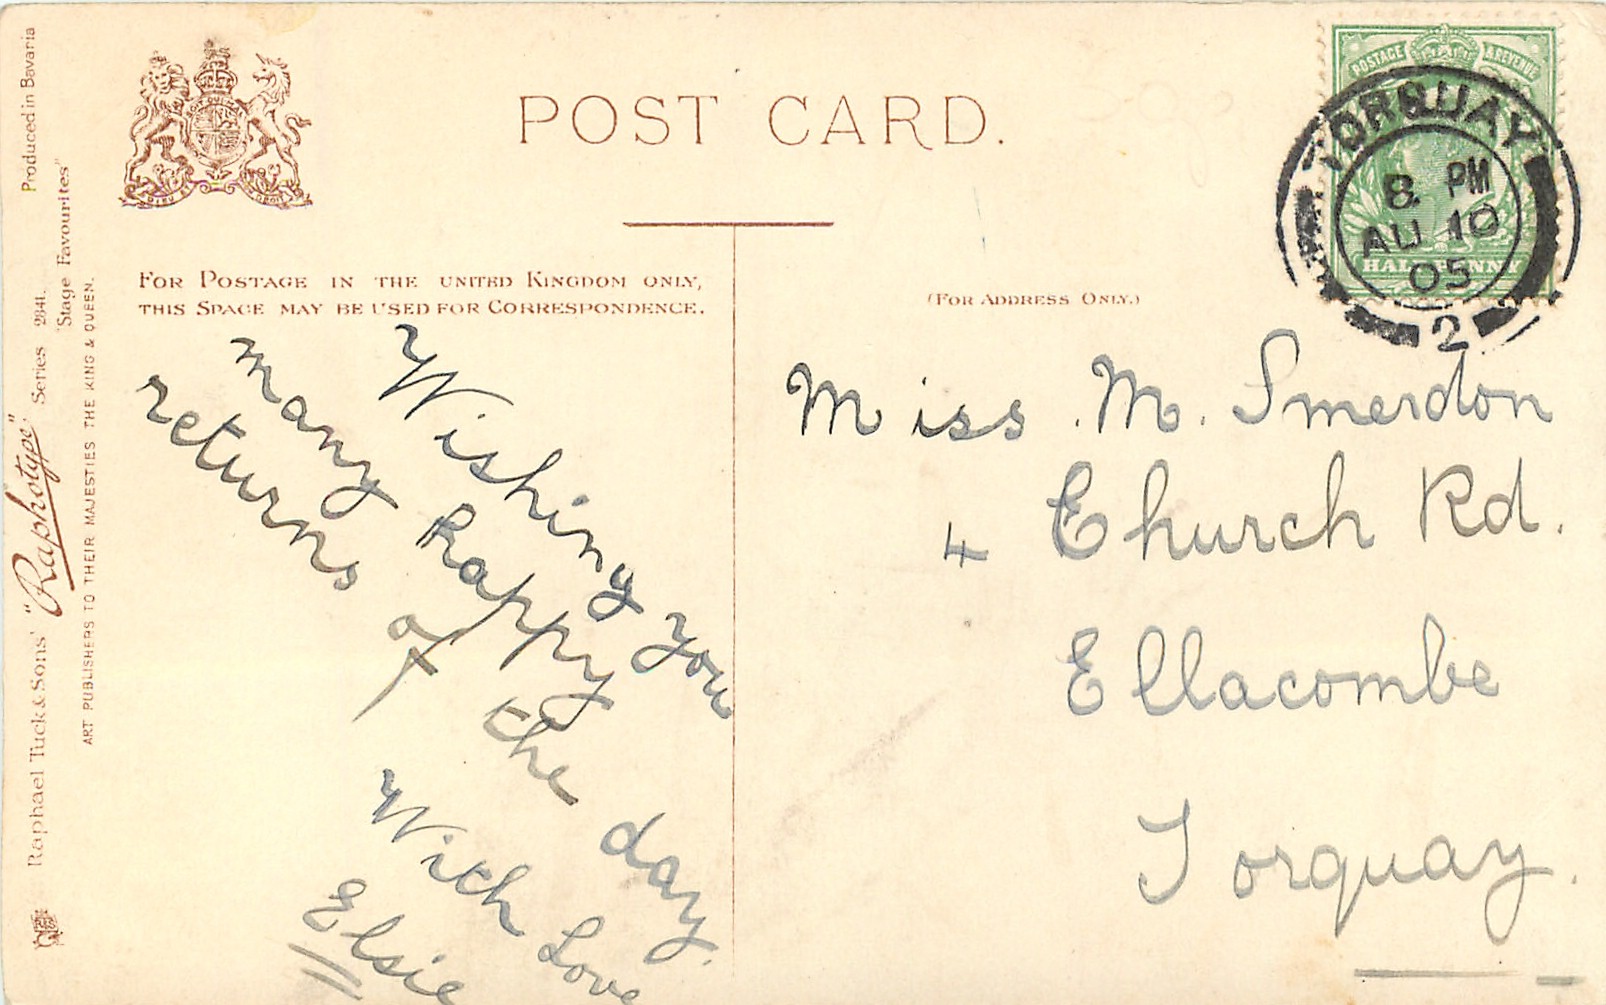 POST CARD.
POSTAGE & REVENUE
HALFPENNY
TORQUAY
8 PM
AU 10
05
2
FOR POSTAGE IN THE UNITED KINGDOM ONLY,
THIS SPACE MAY BE USED FOR CORRESPONDENCE.
(FOR ADDRESS ONLY.)
Wishing you
many happy
returns of the day.
With Love
Elsie
Miss M. Smerdon
4 Church Rd.
Ellacombe
Torquay.
Raphael Tuck & Sons' "Raphotype" Series 2841. Produced in Bavaria
"Stage Favourites"
ART PUBLISHERS TO THEIR MAJESTIES THE KING & QUEEN.